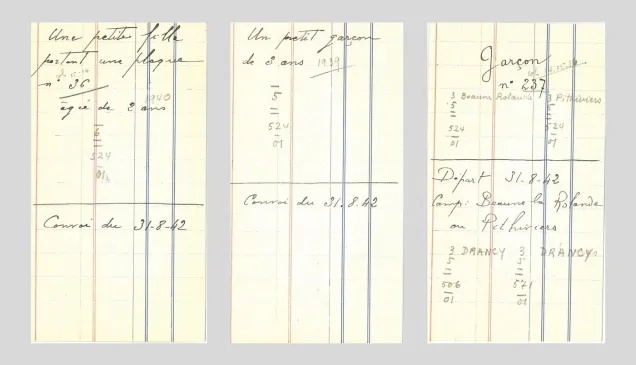 Une petite fille
portant une plaque
n° 36
1940
âgée de 2 ans
6
524
01
Convoi du 31-8-42
Un petit garçon
de 3 ans 1939
5
524
01
Convoi du 31.8.42
Garçon
n° 237
3 Beaune Rolande 3 Pithiviers
5
524 524
01 01
Départ 31.8-42
Camp: Beaune la Rolande
ou Pithiviers
3 DRANCY 3 DRANCY
5 5
506 571
01 01